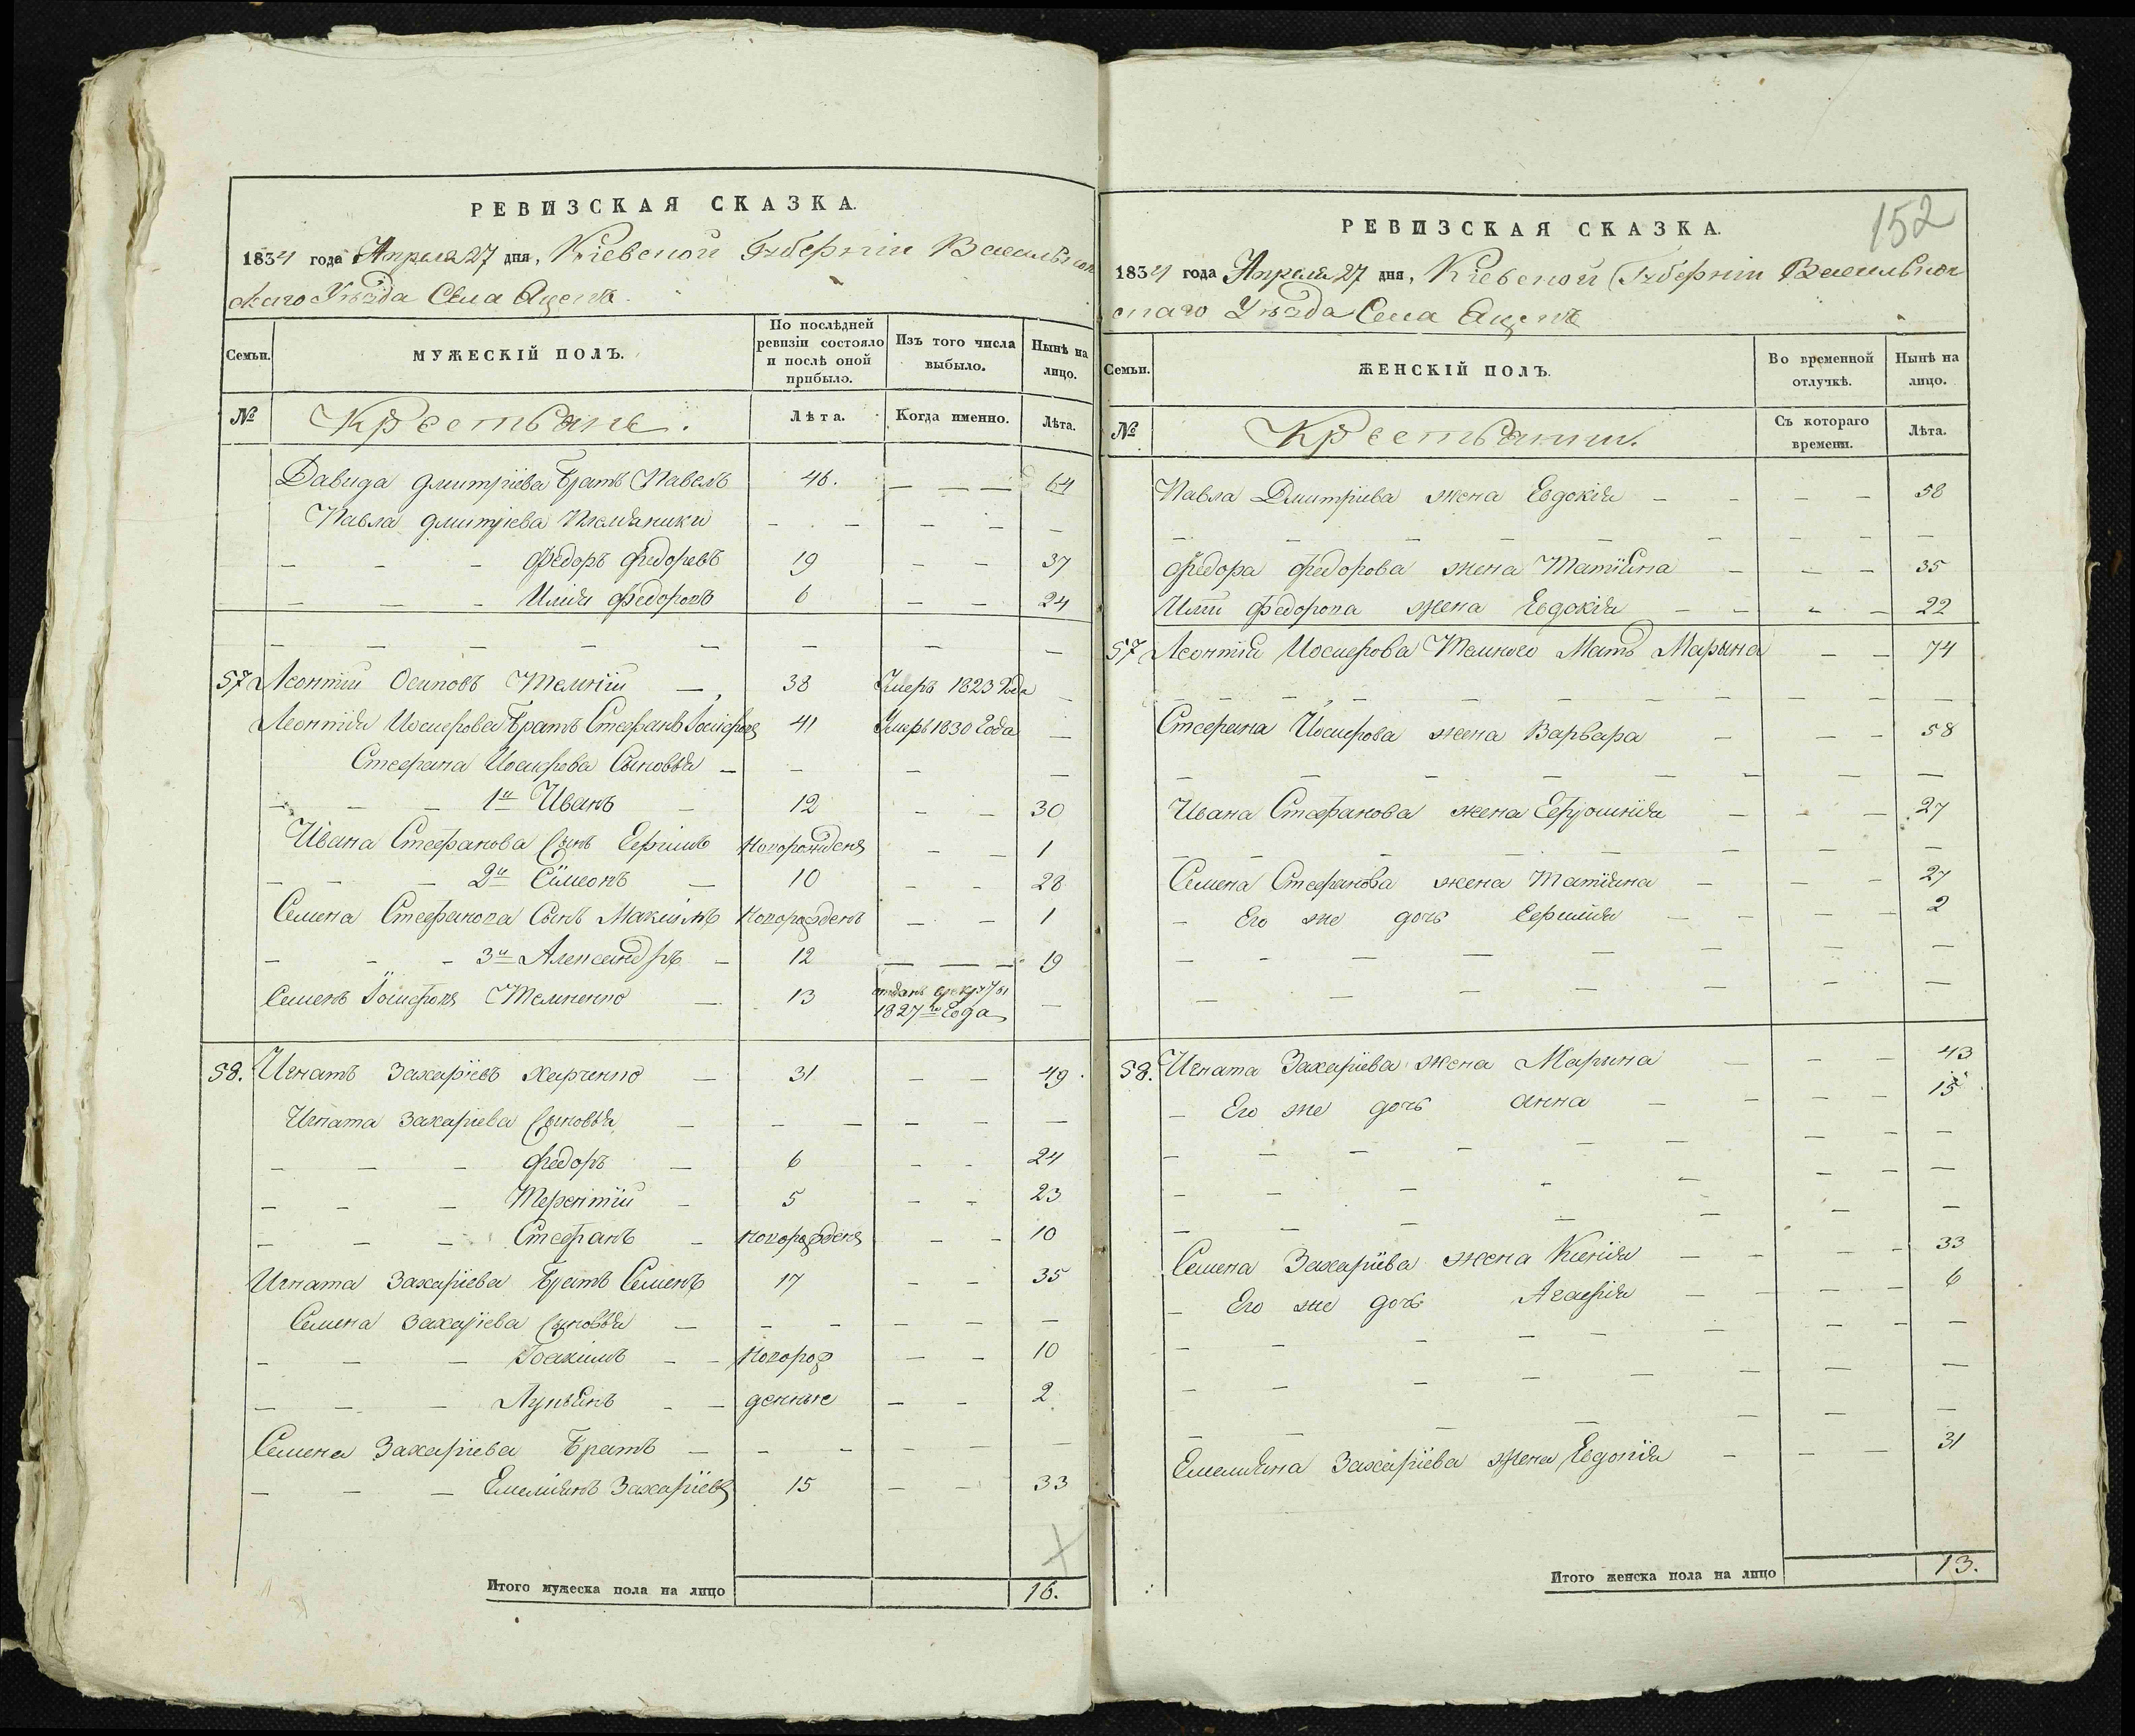 РЕВИЗСКАЯ СКАЗКА.
1834 года Апреля 27 дня, Кіевской Губерніи Васильков
скаго Уѣзда Села Яцекъ
Семьи.
МУЖЕСКІЙ ПОЛЪ.
По послѣдней ревизіи состояло и послѣ оной прибыло.
Изъ того числа выбыло.
Нынѣ на лицо.
№
Крестьяне.
Лѣта.
Когда именно.
Лѣта.
Давида Дмитріева Братъ Павелъ 46. — — — 64
Павла Дмитріева Племяники — — — — —
— — — Федоръ Федоровъ 19 — — 37
— — — Илия Федоровъ 6 — — 24
— — — — — — — —
57 Леонтій Осиповъ Темній — 38 Умеръ 1823 Года —
Леонтія Иосифова Братъ Стефанъ Іосифовъ 41 Умеръ 1830 Года —
Стефана Иосифова Сыновья — — — —
— — — 1й Иванъ — 12 — — 30
Ивана Стефанова Сынъ Ефимъ Новорожденъ — — 1
— — — 2й Симеонъ — 10 — — 28
Семена Стефанова Сынъ Максимъ Новорожденъ — — 1
— — — 3й Александръ — 12 — — — 19
Семенъ Іосифовъ Темненко — 13 отданъ в рекруты 1827го Года —
58. Игнатъ Захаріевъ Харченко — 31 — — 49.
Игната Захаріева Сыновья — — — — — —
— — — Федоръ — 6 — — 24
— — — Терентій — 5 — — 23
— — — Стефанъ — Новорожденъ — — 10
Игната Захаріева Братъ Семенъ 17 — — 35
Семена Захаріева Сыновья — — — — — —
— — — Іоакимъ — — Новорож — — 10
— — — Лукьянъ — — денные — — 2
Семена Захаріева Братъ — — — — — —
— — — Емельянъ Захаріевъ 15 — — 33
Итого мужеска пола на лицо 16.
152
РЕВИЗСКАЯ СКАЗКА.
1834 года Апреля 27 дня, Кіевской Губерніи Васильков
скаго Уѣзда Села Яцекъ
Семьи.
ЖЕНСКІЙ ПОЛЪ.
Во временной отлучкѣ.
Нынѣ на лицо.
№
Крестьянки.
Съ котораго времени.
Лѣта.
Павла Дмитріева жена Евдокія — — — — 58
— — — — — — — — —
Федора Федорова жена Татіяна — — — 35
Иліи Федорова жена Евдокія — — — — 22
57 Леонтія Иосифова Темного Мать Марына — — 74
— — — — — — — — —
Стефана Иосифова жена Варвара — — — 58
— — — — — — — —
Ивана Стефанова жена Ефросинія — — — 27
— — — — — — — —
Семена Стефанова жена Татіяна — — — 27
— Его же дочь Ефимія — — — — 2
— — — — — — — —
— — — — — — — —
58. Игната Захаріева жена Марына — — — 43
— Его же дочь Анна — — — — 15
— — — — — — — — —
— — — — — — — —
— — — — — — —
Семена Захаріева жена Ксенія — — — — 33
— Его же дочь Агафія — — — — 6
— — — — — — — —
— — — — — — — —
— — — — — — —
Емельяна Захаріева жена Евдокія — — — 31
Итого женска пола на лицо 13.